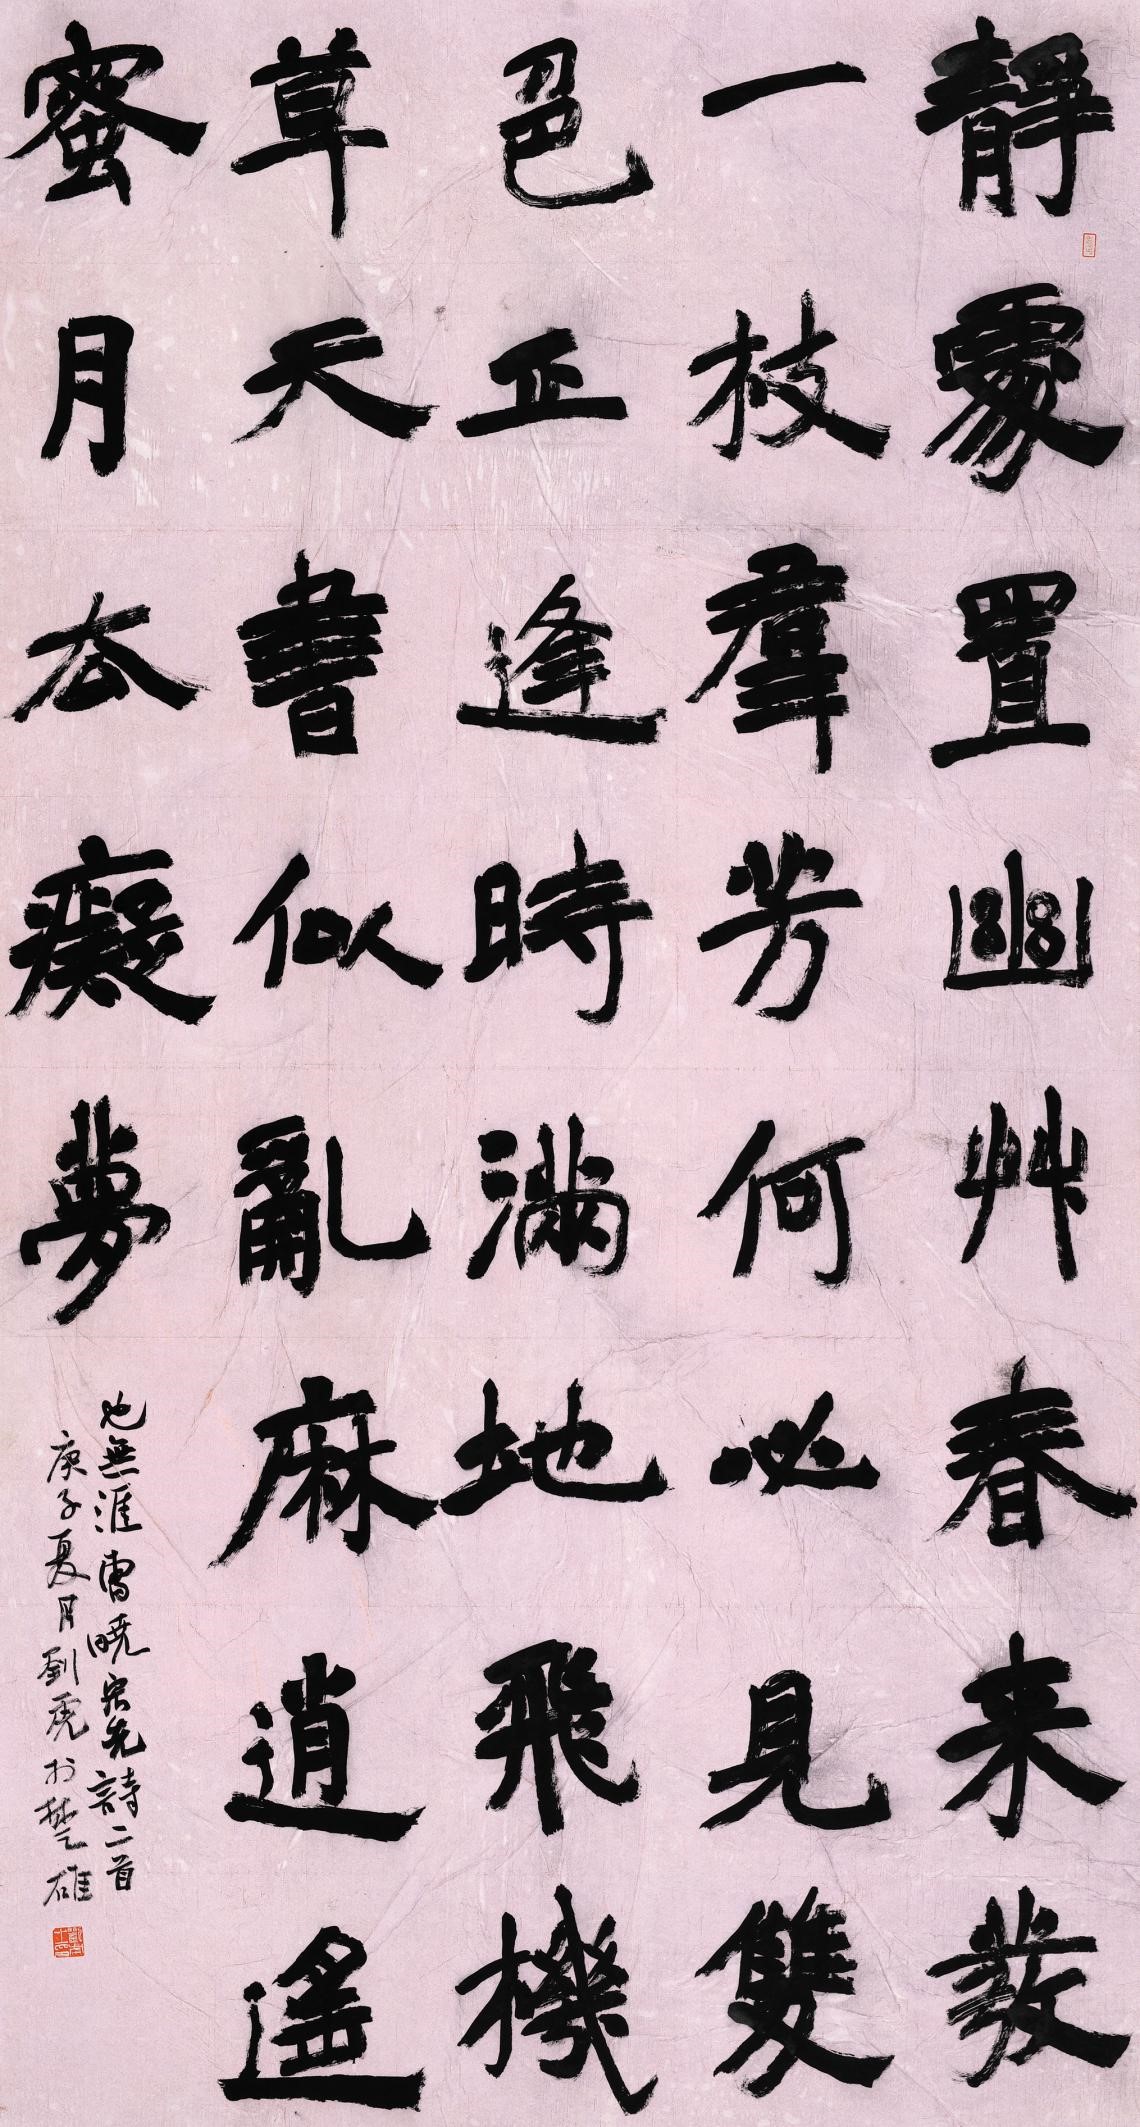 靜處置幽艸春来發
一枝羣芳何必見雙
邑正逢時滿地飛機
草天書似亂麻逍遙
蜜月太癡夢
也無涯曹曉宏先詩二首
庚子夏月劉虎於楚雄